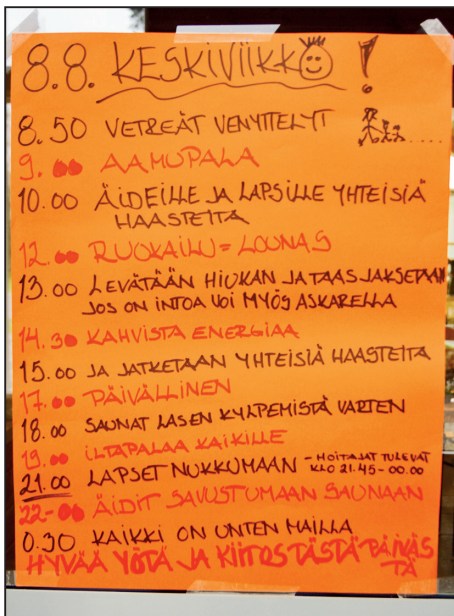 8.8. KESKIVIIKKO!
8.50 VETREÄT VENYTTELYT
9.00 AAMUPALA
10.00 ÄIDEILLE JA LAPSILLE YHTEISIÄ
HAASTEITA
12.00 RUOKAILU = LOUNAS
13.00 LEVÄTÄÄN HIUKAN JA TAAS JAKSETAAN
JOS ON INTOA VOI MYÖS ASKARELLA
14.30 KAHVISTA ENERGIAA
15.00 JA JATKETAAN YHTEISIÄ HAASTEITA
17.00 PÄIVÄLLINEN
18.00 SAUNAT LASEN KYLPEMISTÄ VARTEN
19.00 ILTAPALAA KAIKILLE
21.00 LAPSET NUKKUMAAN - HOITAJAT TULEVAT
KLO 21.45-00.00
22-00 ÄIDIT SAVUSTUMAAN SAUNAAN
0.30 KAIKKI ON UNTEN MAILLA
HYVÄÄ YÖTÄ JA KIITOS TÄSTÄ PÄIVÄS
TÄ